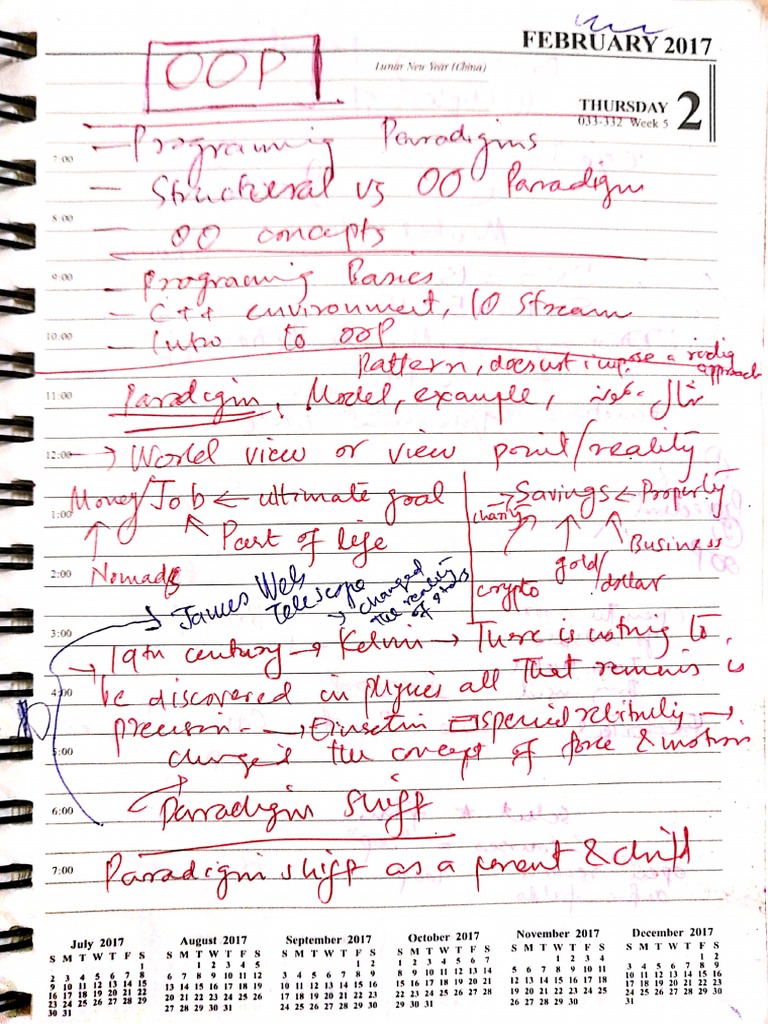 FEBRUARY 2017
OOP
Lunar New Year (China)
THURSDAY 2
033-332 Week 5
7:00
- Programing Paradigms
- Structural vs OO Paradigm
8:00
- OO concepts
9:00
- Programing Basics
- C++ environment, IO Stream
10:00
- Intro to OOP
Pattern, doesnt impose a
approach
11:00
Paradigm, Model, example, مثال
12:00
→ World view or view point/reality
Money/Job ← ultimate goal
→ Savings ← Property
1:00
charity
Part of life
Business
2:00
Nomads
gold/
crypto
dollar
James Web
Telescope
→ changed
the reality
of stars
3:00
→ 19th century → Kelvin → There is notning to
4:00
be discovered in physics all That remains is
precision - → Einsetin special relitivity →
5:00
changed the concept of force & motion
6:00
Paradigm shift
7:00
Paradigm shift as a parent & child
July 2017
S M T W T F S
1
2 3 4 5 6 7 8
9 10 11 12 13 14 15
16 17 18 19 20 21 22
23 24 25 26 27 28 29
30 31
August 2017
S M T W T F S
1 2 3 4 5
6 7 8 9 10 11 12
13 14 15 16 17 18 19
20 21 22 23 24 25 26
27 28 29 30 31
September 2017
S M T W T F S
1 2
3 4 5 6 7 8 9
10 11 12 13 14 15 16
17 18 19 20 21 22 23
24 25 26 27 28 29 30
October 2017
S M T W T F S
1 2 3 4 5 6 7
8 9 10 11 12 13 14
15 16 17 18 19 20 21
22 23 24 25 26 27 28
29 30 31
November 2017
S M T W T F S
1 2 3 4
5 6 7 8 9 10 11
12 13 14 15 16 17 18
19 20 21 22 23 24 25
26 27 28 29 30
December 2017
S M T W T F S
1 2
3 4 5 6 7 8 9
10 11 12 13 14 15 16
17 18 19 20 21 22 23
24 25 26 27 28 29 30
31